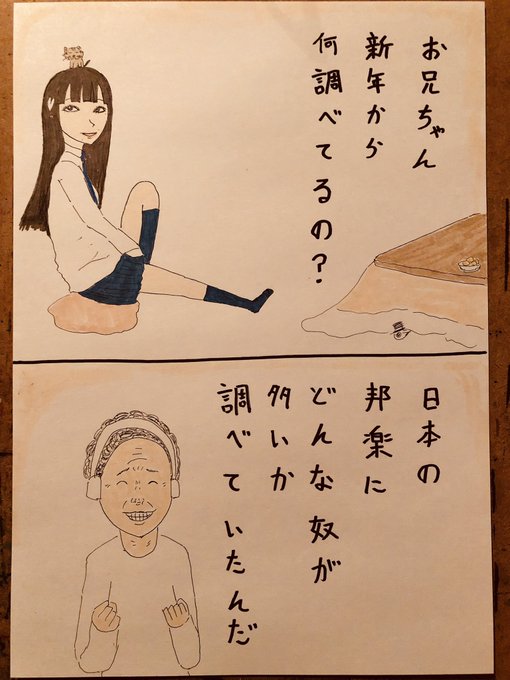 お兄ちゃん
新年から
何調べてるの?
日本の
邦楽に
どんな奴が
多いか
調べていたんだ